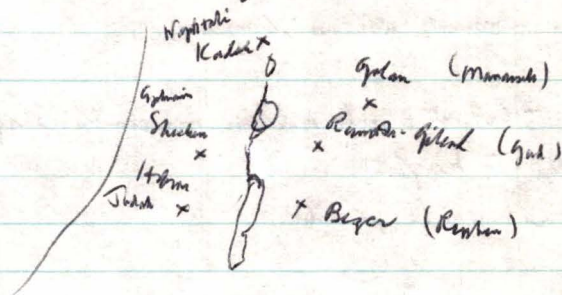 Naphtali
Kadesh
Golan (Manasseh)
Ephraim
Shechem
Ramoth-Gilead (Gad)
Hebron
Judah
Bezer (Reuben)